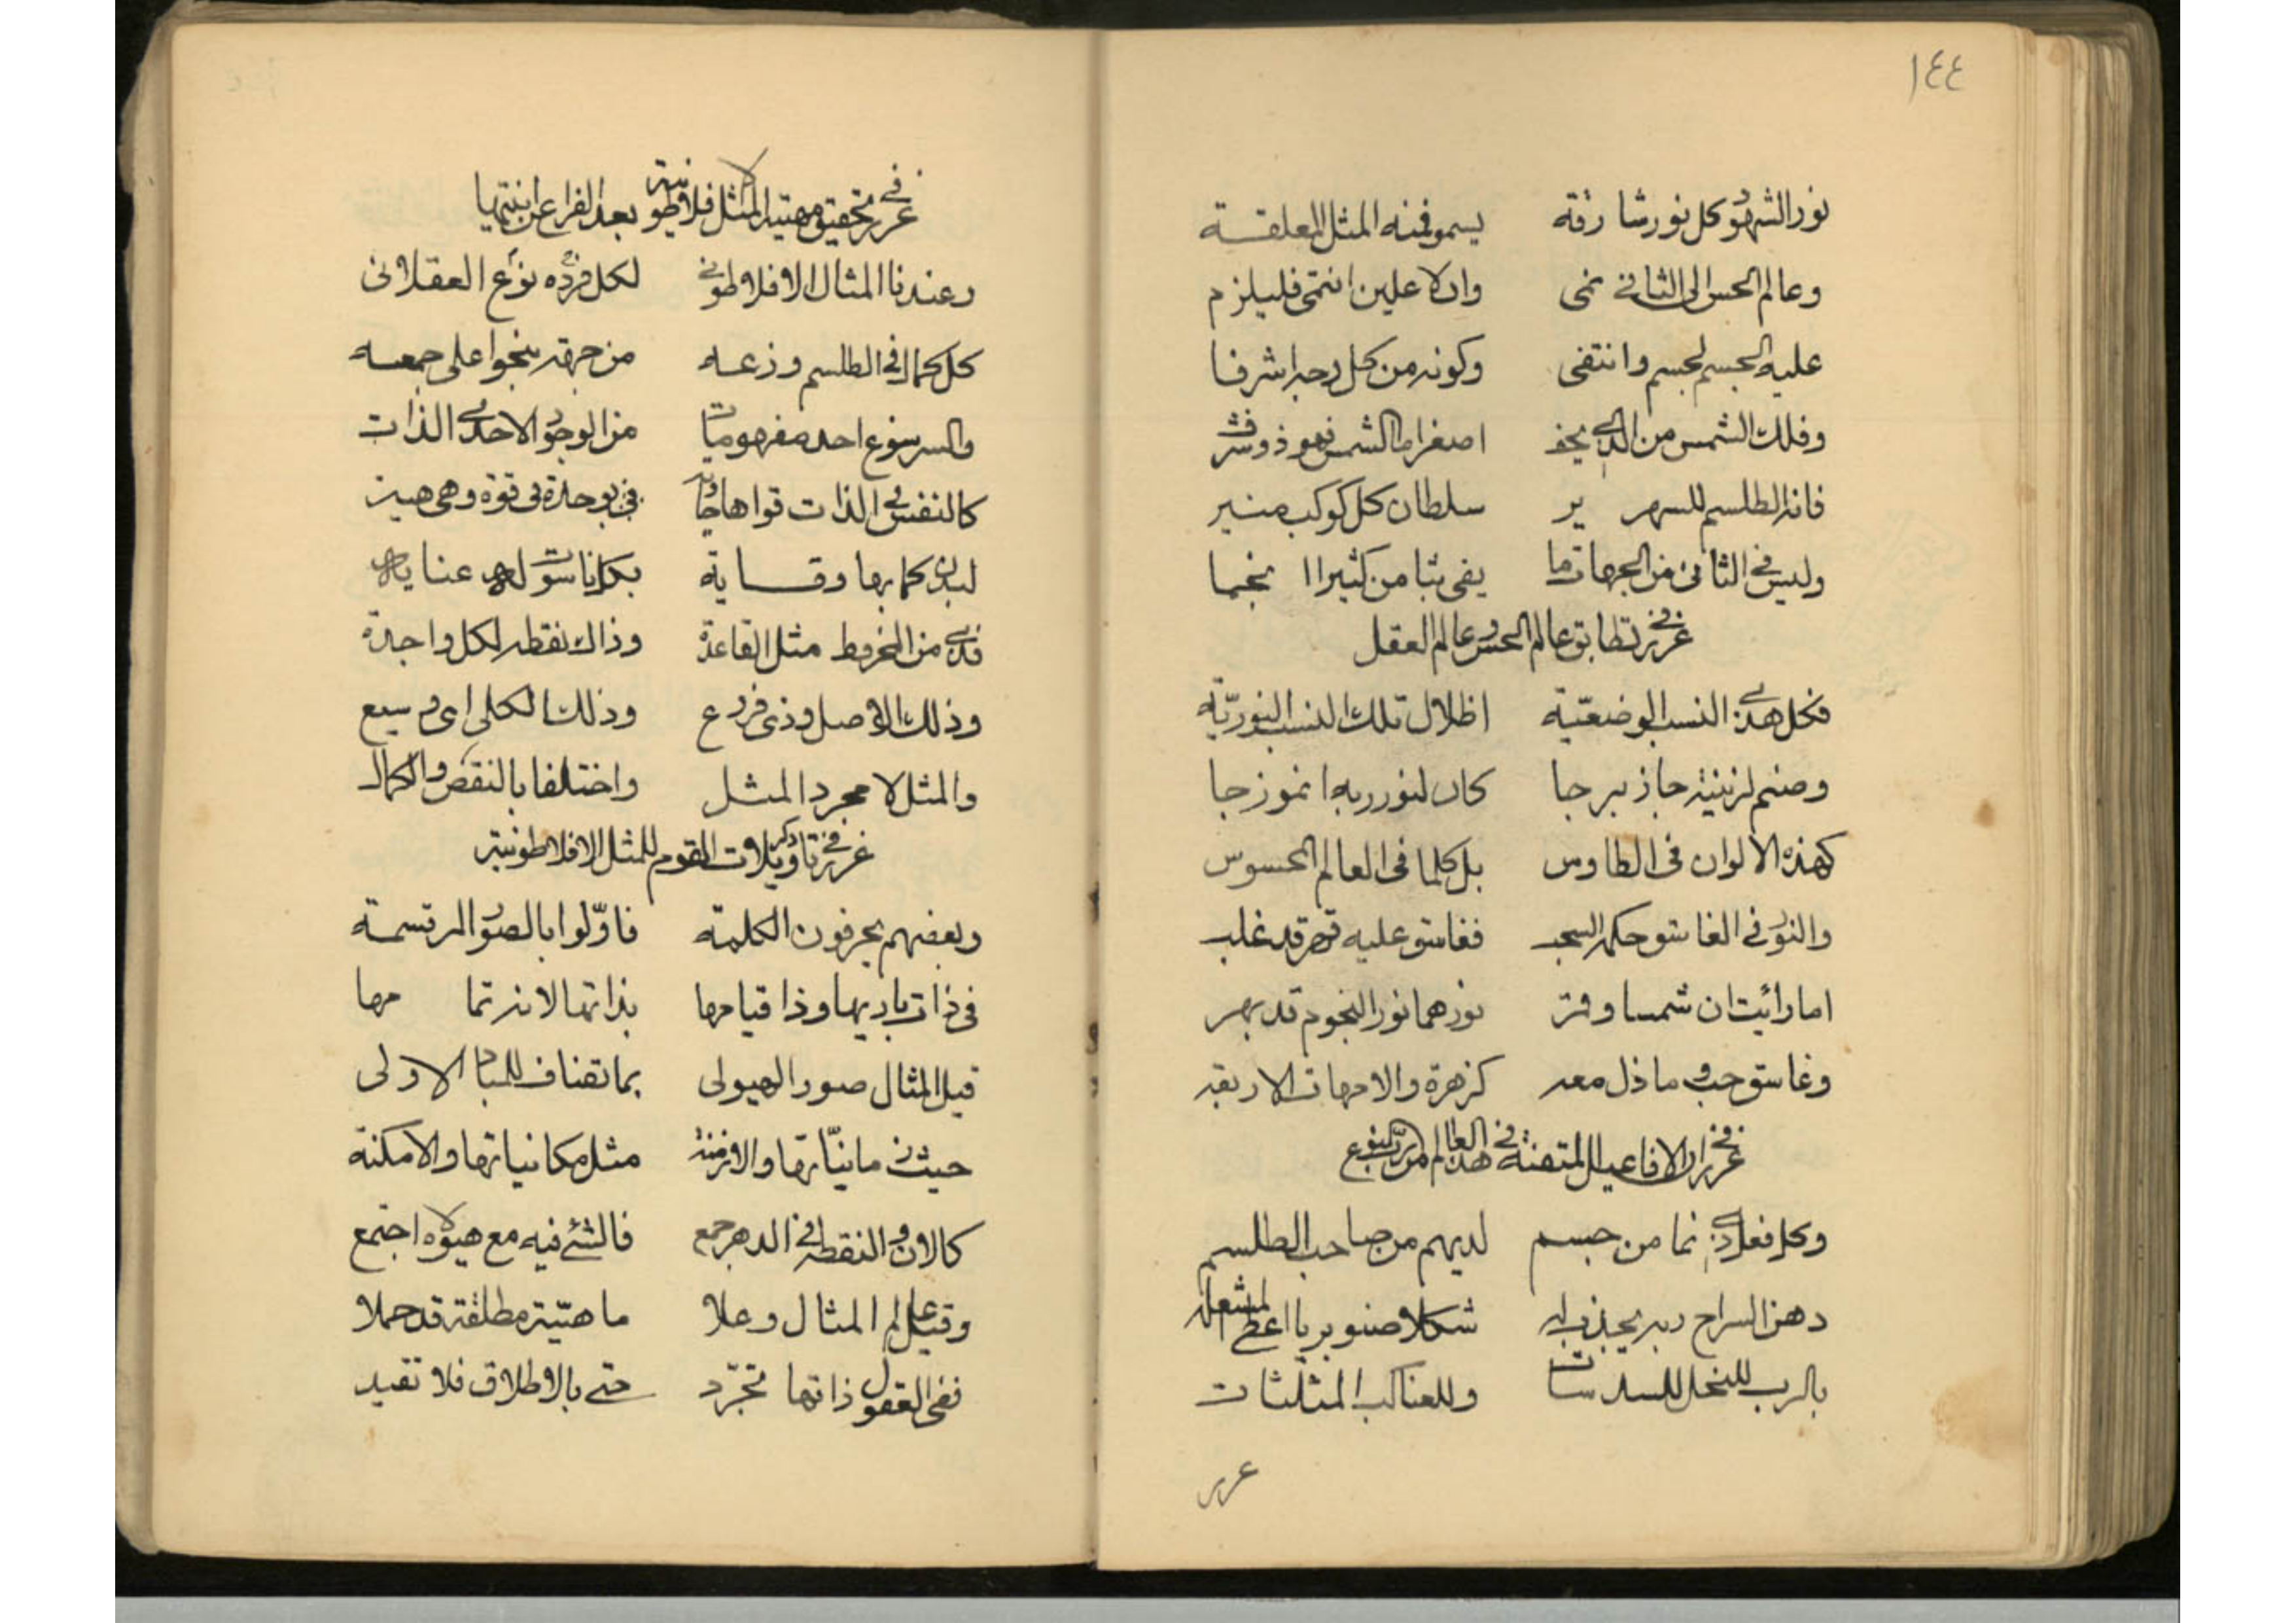 ١٤٤
نور الشهود كل نور شارقة يسمو فمنه المثل المعلقة
وعالم الحس الى الثاني نمى وان لاعلين انتمى فليلزم
علية الجسم لجسم وانتفى وكونه من كل وجه اشرفا
وفلك الشمس من الذي يخف اصغر اما الشمس فهو ذو شرف
فانه الطلسم للسهر ير سلطان كل كوكب منير
وليس في الثاني من الجهات ما يفي بثامن كثيرا انجما
غرر في تطابق عالم الحس وعالم العقل
فكل هذي النسب الوضعية اظلال تلك النسب النورية
وصنم لزينة حاز برجا كان لنور ربه انموزجا
كهذه الالوان في الطاوس بل كلما في العالم المحسوس
والنور في الغاسق حكمه السحب فغاسق عليه قهر قد غلب
اما رأيت ان شمسا وقمر نورهما نور النجوم قد بهر
وغاسق حب وما ذل معه كزهرة والامهات الاربعة
غرر في ان الافاعيل المتقنة في هذا العالم من رب النوع
وكل فعل ذي نما من جسم لديهم من صاحب الطلسم
دهن السراج ربه يجذب له شكلا صنوبريا اعطى المشعله
بالرب للنحل المسدسات وللعناكب المثلثات
غرر
غرر في تحقيق مهية المثل الافلاطونية بعد الفراغ عن انيتها
وعندنا المثال الافلاطوني لكل نوع فرده العقلاني
كل كمال في الطلسم وزعه من جهة بنحو اعلى جمعه
والسر سوغ احد مفهومات من الوجود الاحدي الذات
كالنفس في الذات قواها حاوية في وحدة في قوة وهي هيه
لبدن كما بها وقاية بكل ناسوت له عناية
فذي من المخروط مثل القاعدة وذاك نقطه لكل واجدة
وذلك الاصل وذي فروع وذلك الكلي اي وسيع
والمثل لا مجرد المثل واختلفا بالنقص والكمال
غرر في ذكر تاويلات القوم للمثل الافلاطونية
وبعضهم يحرفون الكلمة فاولوا بالصور المرتسمة
في ذات باريها وذا قيامها بذاتها لانه تما مها
قيل المثال صور الهيولى بما تضاف للمبادي الاولى
حيث زمانياتها والازمنة مثل مكانياتها والامكنة
كالان والنقطة في الدهر جمع فالشئ فيه مع هيولاه اجتمع
وقيل عالم المثال وعلا ماهية مطلقة قد حملا
ففي العقول ذاتها تجرد حتى بالاطلاق فلا تقيد